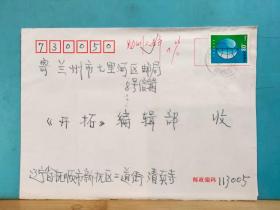 730050
寄 兰州市七里河区邮局
8号信箱
《开拓》编辑部 收
辽宁省抚顺市新抚区二道街 清真寺
邮政编码 113005